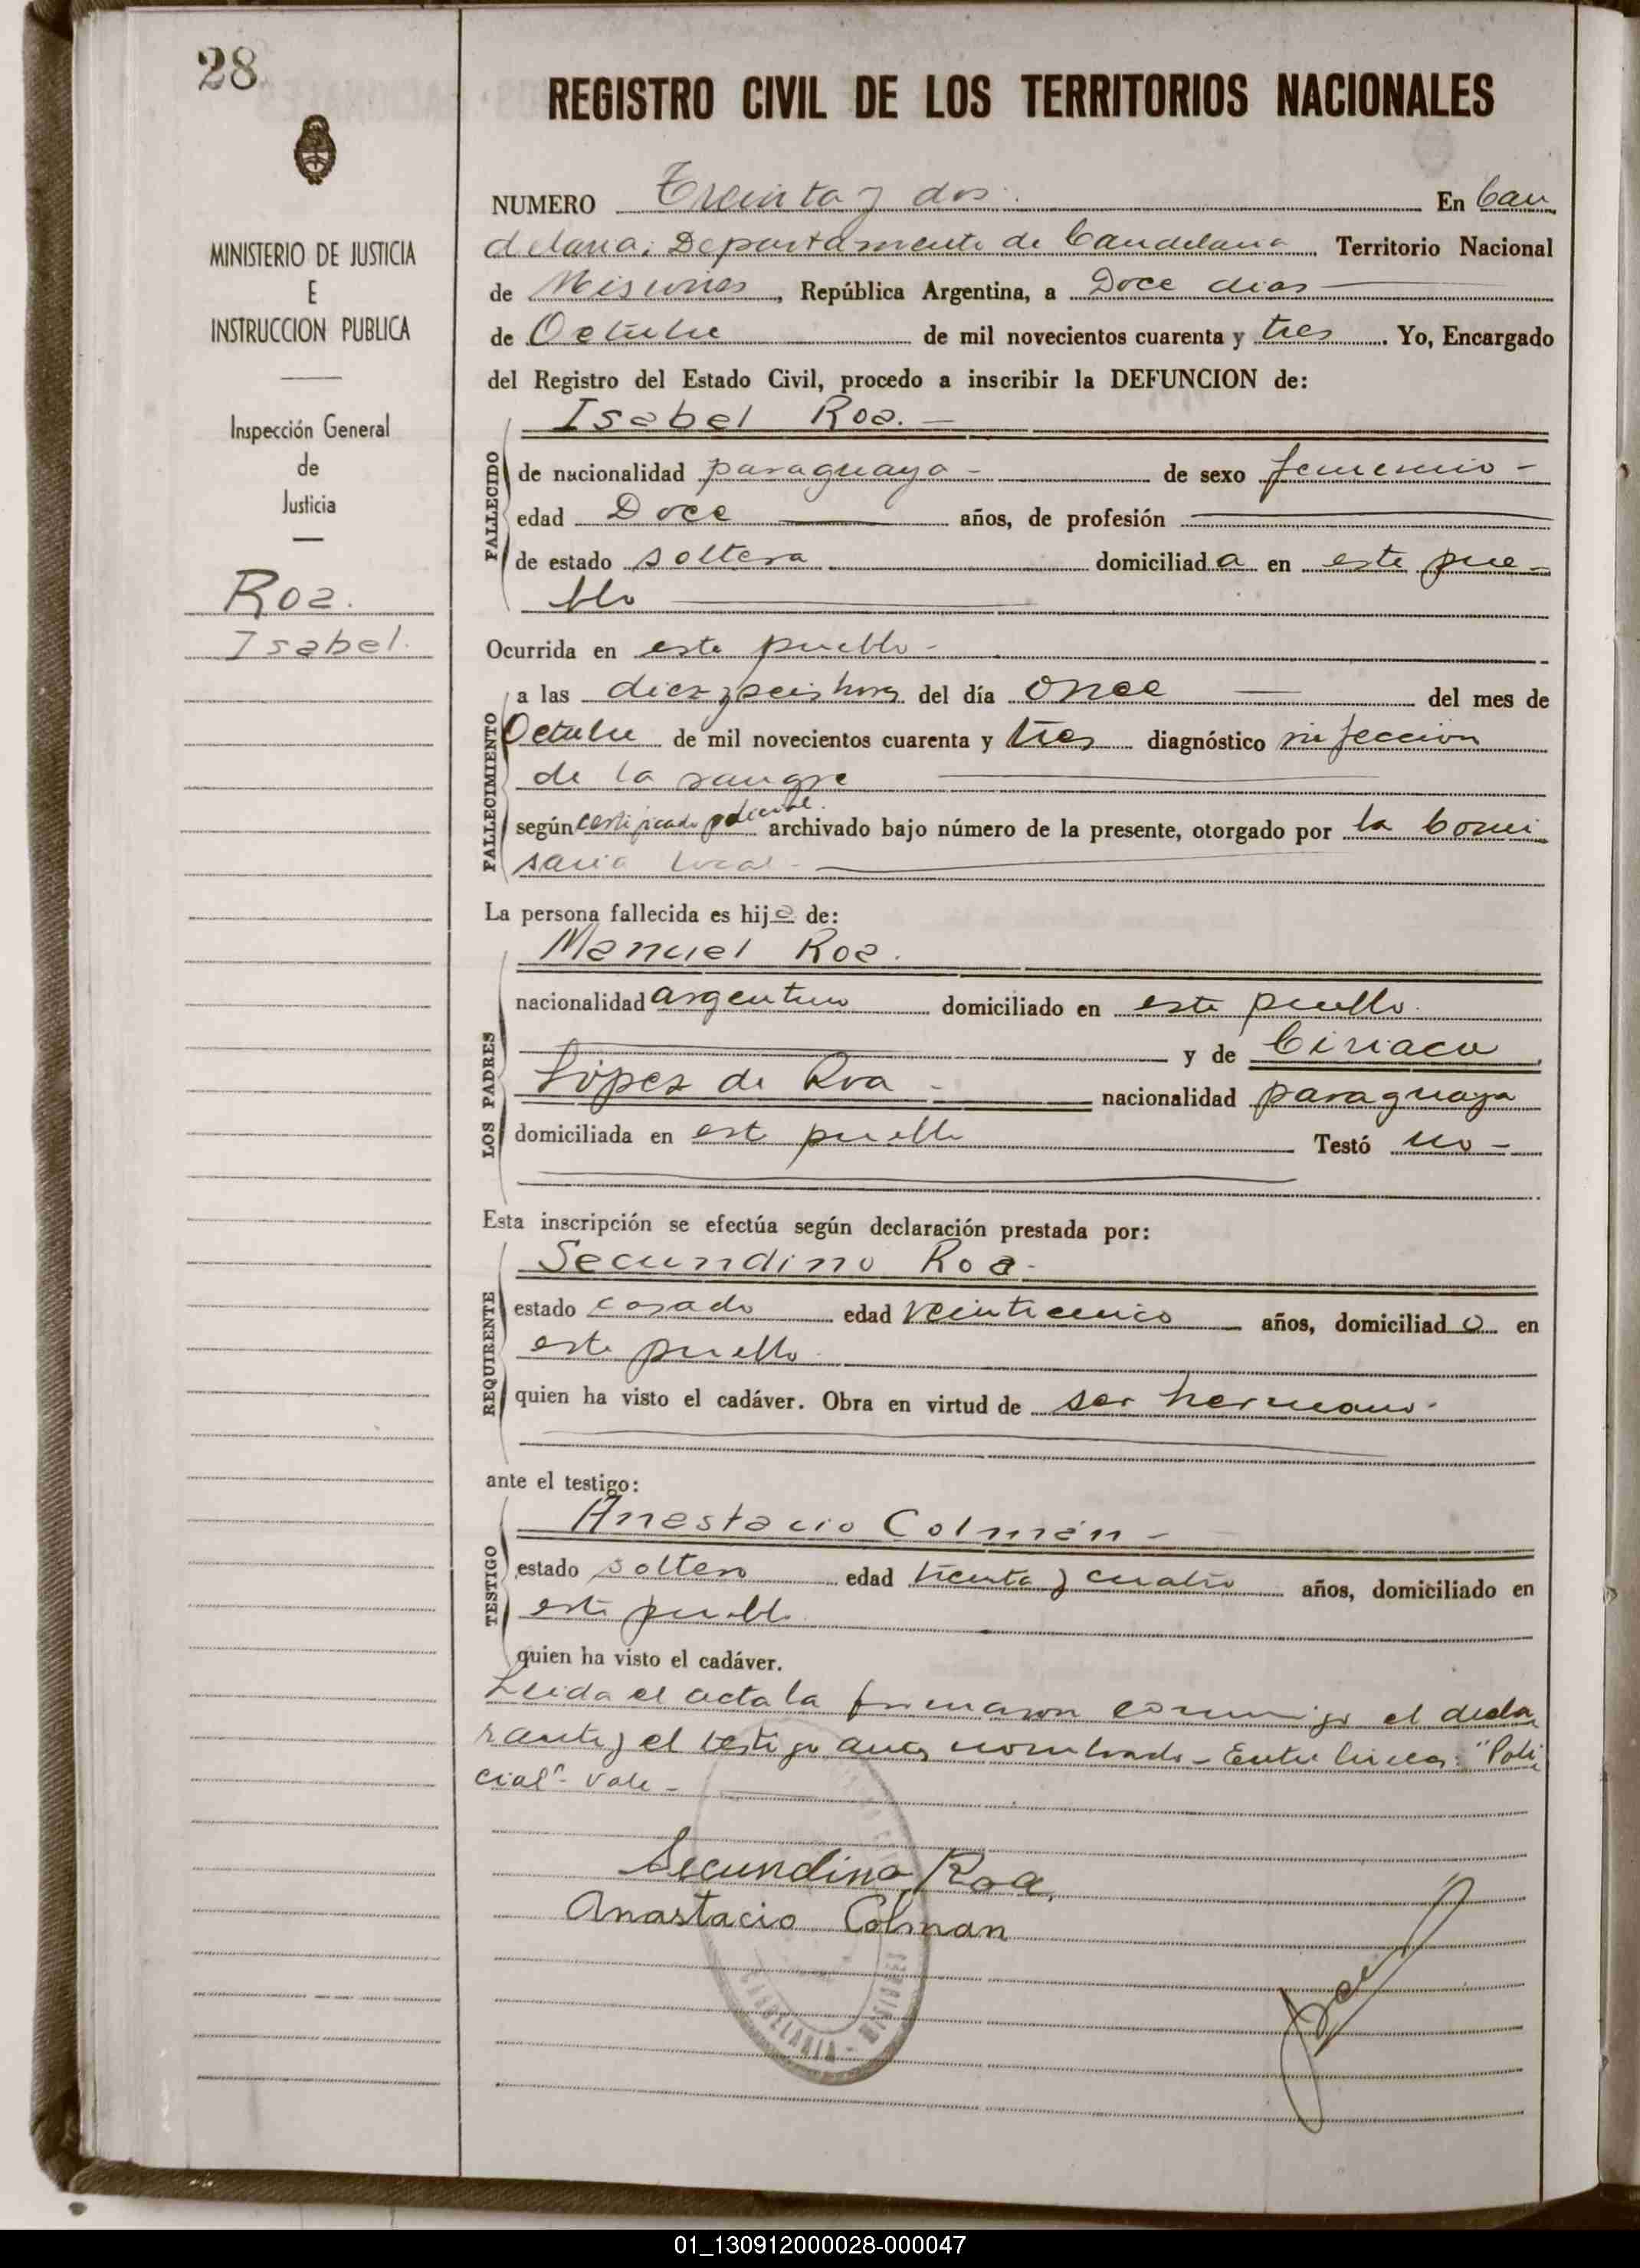 28
MINISTERIO DE JUSTICIA
E
INSTRUCCION PUBLICA
Inspección General
de
Justicia
Roa.
Isabel.
REGISTRO CIVIL DE LOS TERRITORIOS NACIONALES
NUMERO Treinta y dos. En Can
delaria, Departamento de Candelaria Territorio Nacional
de Misiones, República Argentina, a Doce dias
de Octubre de mil novecientos cuarenta y tres. Yo, Encargado
del Registro del Estado Civil, procedo a inscribir la DEFUNCION de:
Isabel Roa. —
FALLECIDO
de nacionalidad paraguaya - de sexo femenino -
edad Doce años, de profesión
de estado soltera domiciliada en este pue-
blo
Ocurrida en este pueblo -
FALLECIMIENTO
a las diez y seis horas del día once del mes de
Octubre de mil novecientos cuarenta y tres diagnóstico infeccion
de la sangre
según certificado policial archivado bajo número de la presente, otorgado por la Comi
saria local -
La persona fallecida es hija de:
LOS PADRES
Manuel Roa.
nacionalidad argentino domiciliado en este pueblo.
y de Ciriaca
López de Roa - nacionalidad paraguaya
domiciliada en este pueblo Testó no -
Esta inscripción se efectúa según declaración prestada por:
REQUIRENTE
Secundino Roa -
estado casado edad veinticinco años, domiciliado en
este pueblo
quien ha visto el cadáver. Obra en virtud de ser hermano -
ante el testigo:
TESTIGO
Anastacio Colmán -
estado soltero edad treinta y cuatro años, domiciliado en
este pueblo
quien ha visto el cadáver.
Leida el acta la firmaron conmigo el decla
rante y el testigo antes nombrado - Entre lineas: "Poli
cial" - Vale -
Secundino Roa.
Anastacio Colman
CANDELARIA - MISIONES
01_130912000028-000047